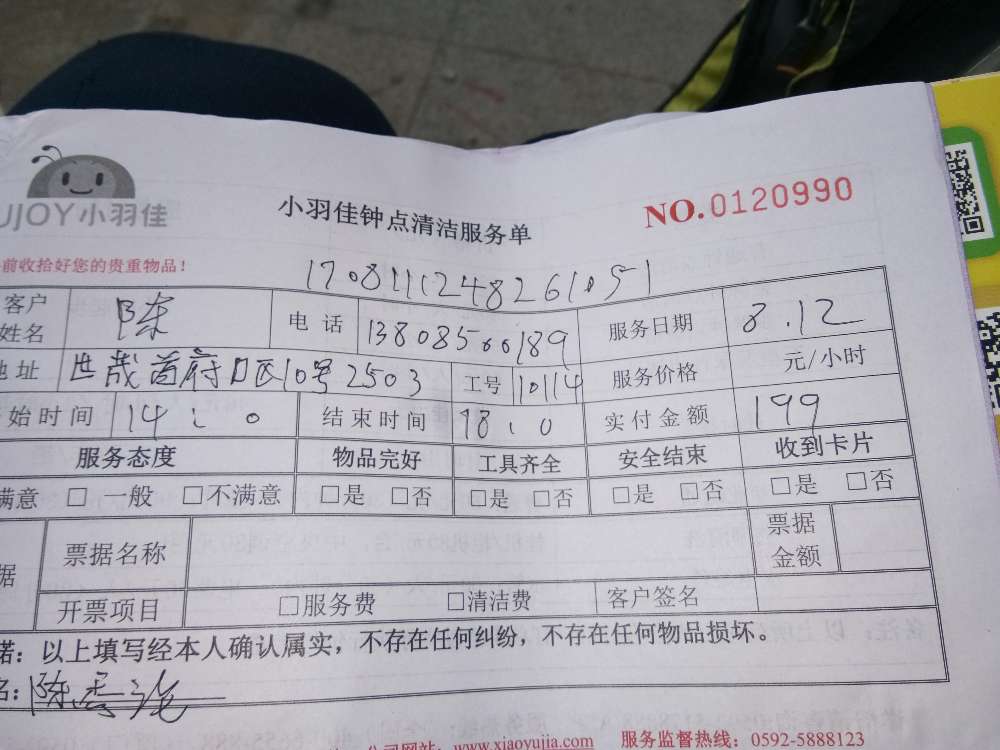 UJOY小羽佳
小羽佳钟点清洁服务单
NO.0120990
前收拾好您的贵重物品！
客户姓名 陈 电话 13808560189 服务日期 8.12
地址 世茂首府D区10号2503 工号 10114 服务价格 元/小时
始时间 14:0 结束时间 18:0 实付金额 199
服务态度 物品完好 工具齐全 安全结束 收到卡片
满意 □一般 □不满意 □是 □否 □是 □否 □是 □否 □是 □否
据 票据名称 票据金额
开票项目 □服务费 □清洁费 客户签名
诺：以上填写经本人确认属实，不存在任何纠纷，不存在任何物品损坏。
名：陈
公司网站：www.xiaoyujia.com 服务监督热线：0592-5888123